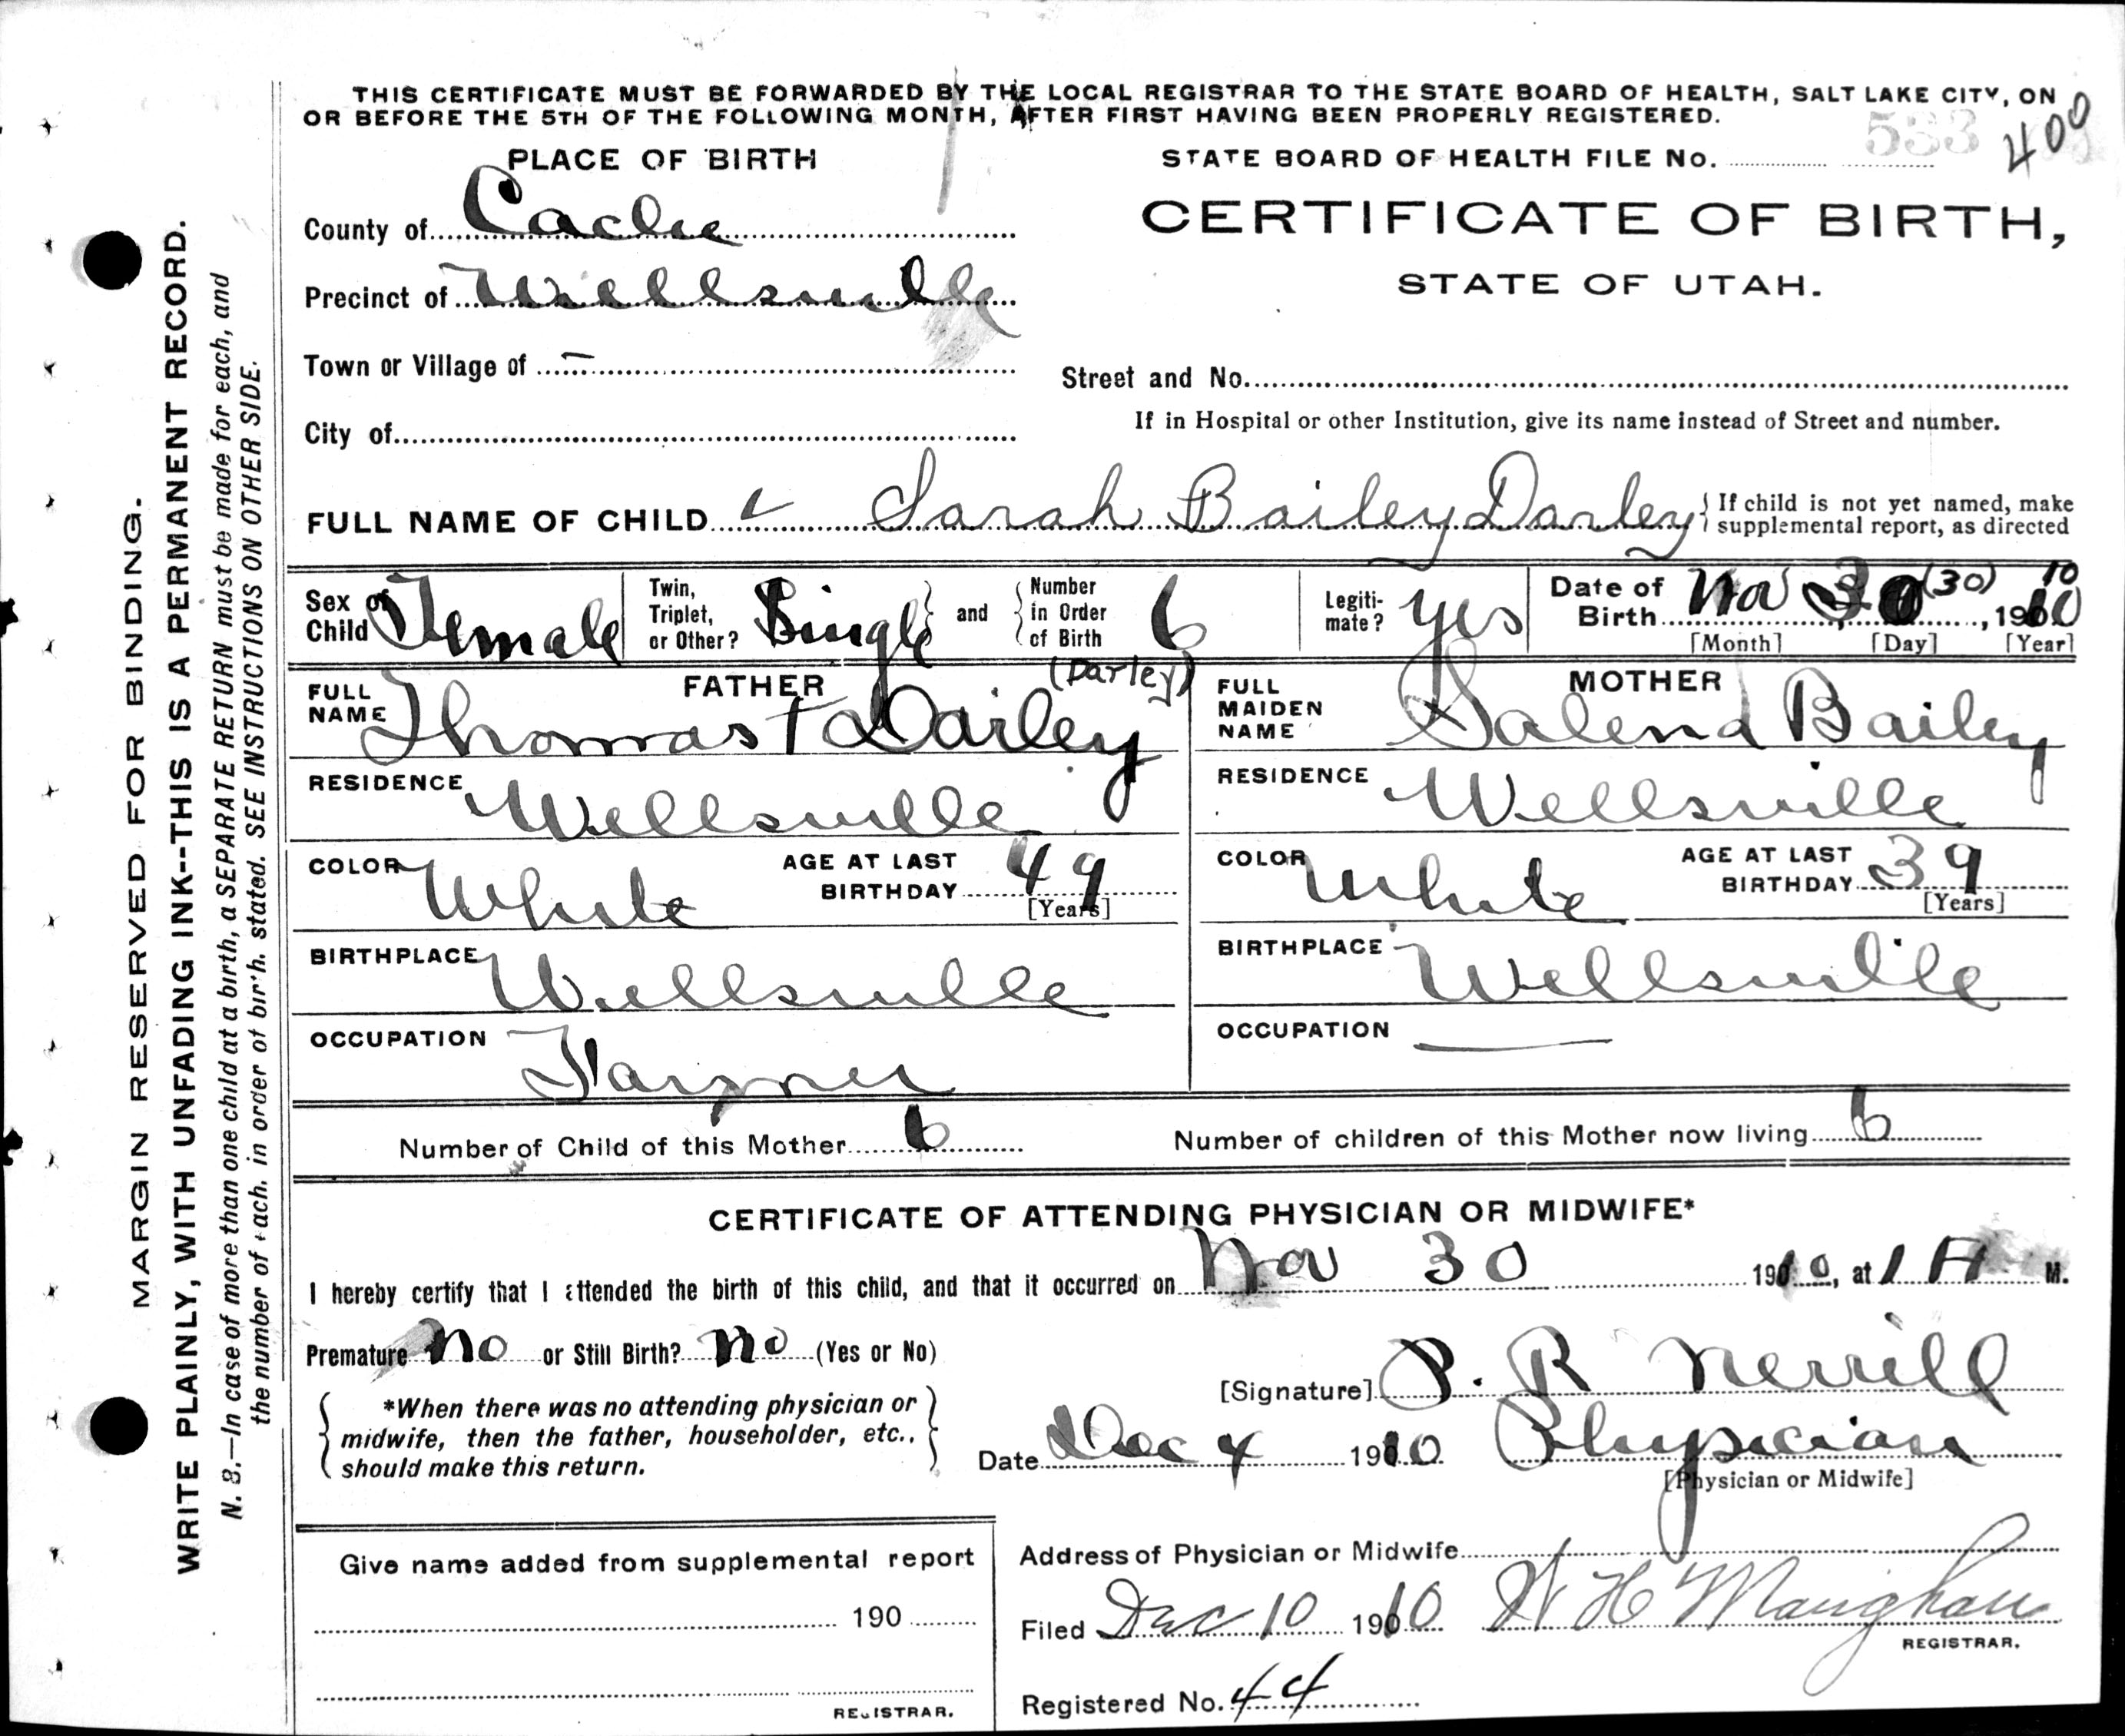 THIS CERTIFICATE MUST BE FORWARDED BY THE LOCAL REGISTRAR TO THE STATE BOARD OF HEALTH, SALT LAKE CITY, ON
OR BEFORE THE 5TH OF THE FOLLOWING MONTH, AFTER FIRST HAVING BEEN PROPERLY REGISTERED.
PLACE OF BIRTH
STATE BOARD OF HEALTH FILE No. 533 400
County of Cache
CERTIFICATE OF BIRTH,
Precinct of Wellsville
STATE OF UTAH.
Town or Village of –
Street and No.
If in Hospital or other Institution, give its name instead of Street and number.
City of
FULL NAME OF CHILD Sarah Bailey Darley { If child is not yet named, make
supplemental report, as directed
Sex of Child Female
Twin, Triplet, or Other? Single and Number in Order of Birth 6
Legiti-mate? yes
Date of Birth Nov 30 (30), 1910 10
[Month] [Day] [Year]
FATHER
FULL NAME Thomas T Darley (Darley)
RESIDENCE Wellsville
COLOR White AGE AT LAST BIRTHDAY 49 [Years]
BIRTHPLACE Wellsville
OCCUPATION Farmer
MOTHER
FULL MAIDEN NAME Salena Bailey
RESIDENCE Wellsville
COLOR White AGE AT LAST BIRTHDAY 39 [Years]
BIRTHPLACE Wellsville
OCCUPATION —
Number of Child of this Mother 6 Number of children of this Mother now living 6
CERTIFICATE OF ATTENDING PHYSICIAN OR MIDWIFE*
I hereby certify that I attended the birth of this child, and that it occurred on Nov 30 1910, at 1 A M.
Premature no or Still Birth? no (Yes or No)
[Signature] P. R Merrill
*When there was no attending physician or
midwife, then the father, householder, etc.,
should make this return.
Date Dec 4 1910 Physician
[Physician or Midwife]
Give name added from supplemental report
190
REGISTRAR.
Address of Physician or Midwife
Filed Dec 10 1910 W H Maughan
REGISTRAR.
Registered No. 44
MARGIN RESERVED FOR BINDING.
WRITE PLAINLY, WITH UNFADING INK--THIS IS A PERMANENT RECORD.
N. B.—In case of more than one child at a birth, a SEPARATE RETURN must be made for each, and
the number of each, in order of birth. stated. SEE INSTRUCTIONS ON OTHER SIDE.